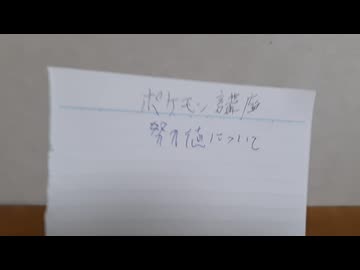 ポケモン講座
努力値について